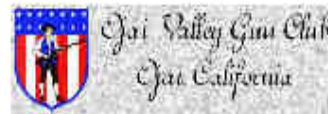 Ojai Valley Gun Club
Ojai California